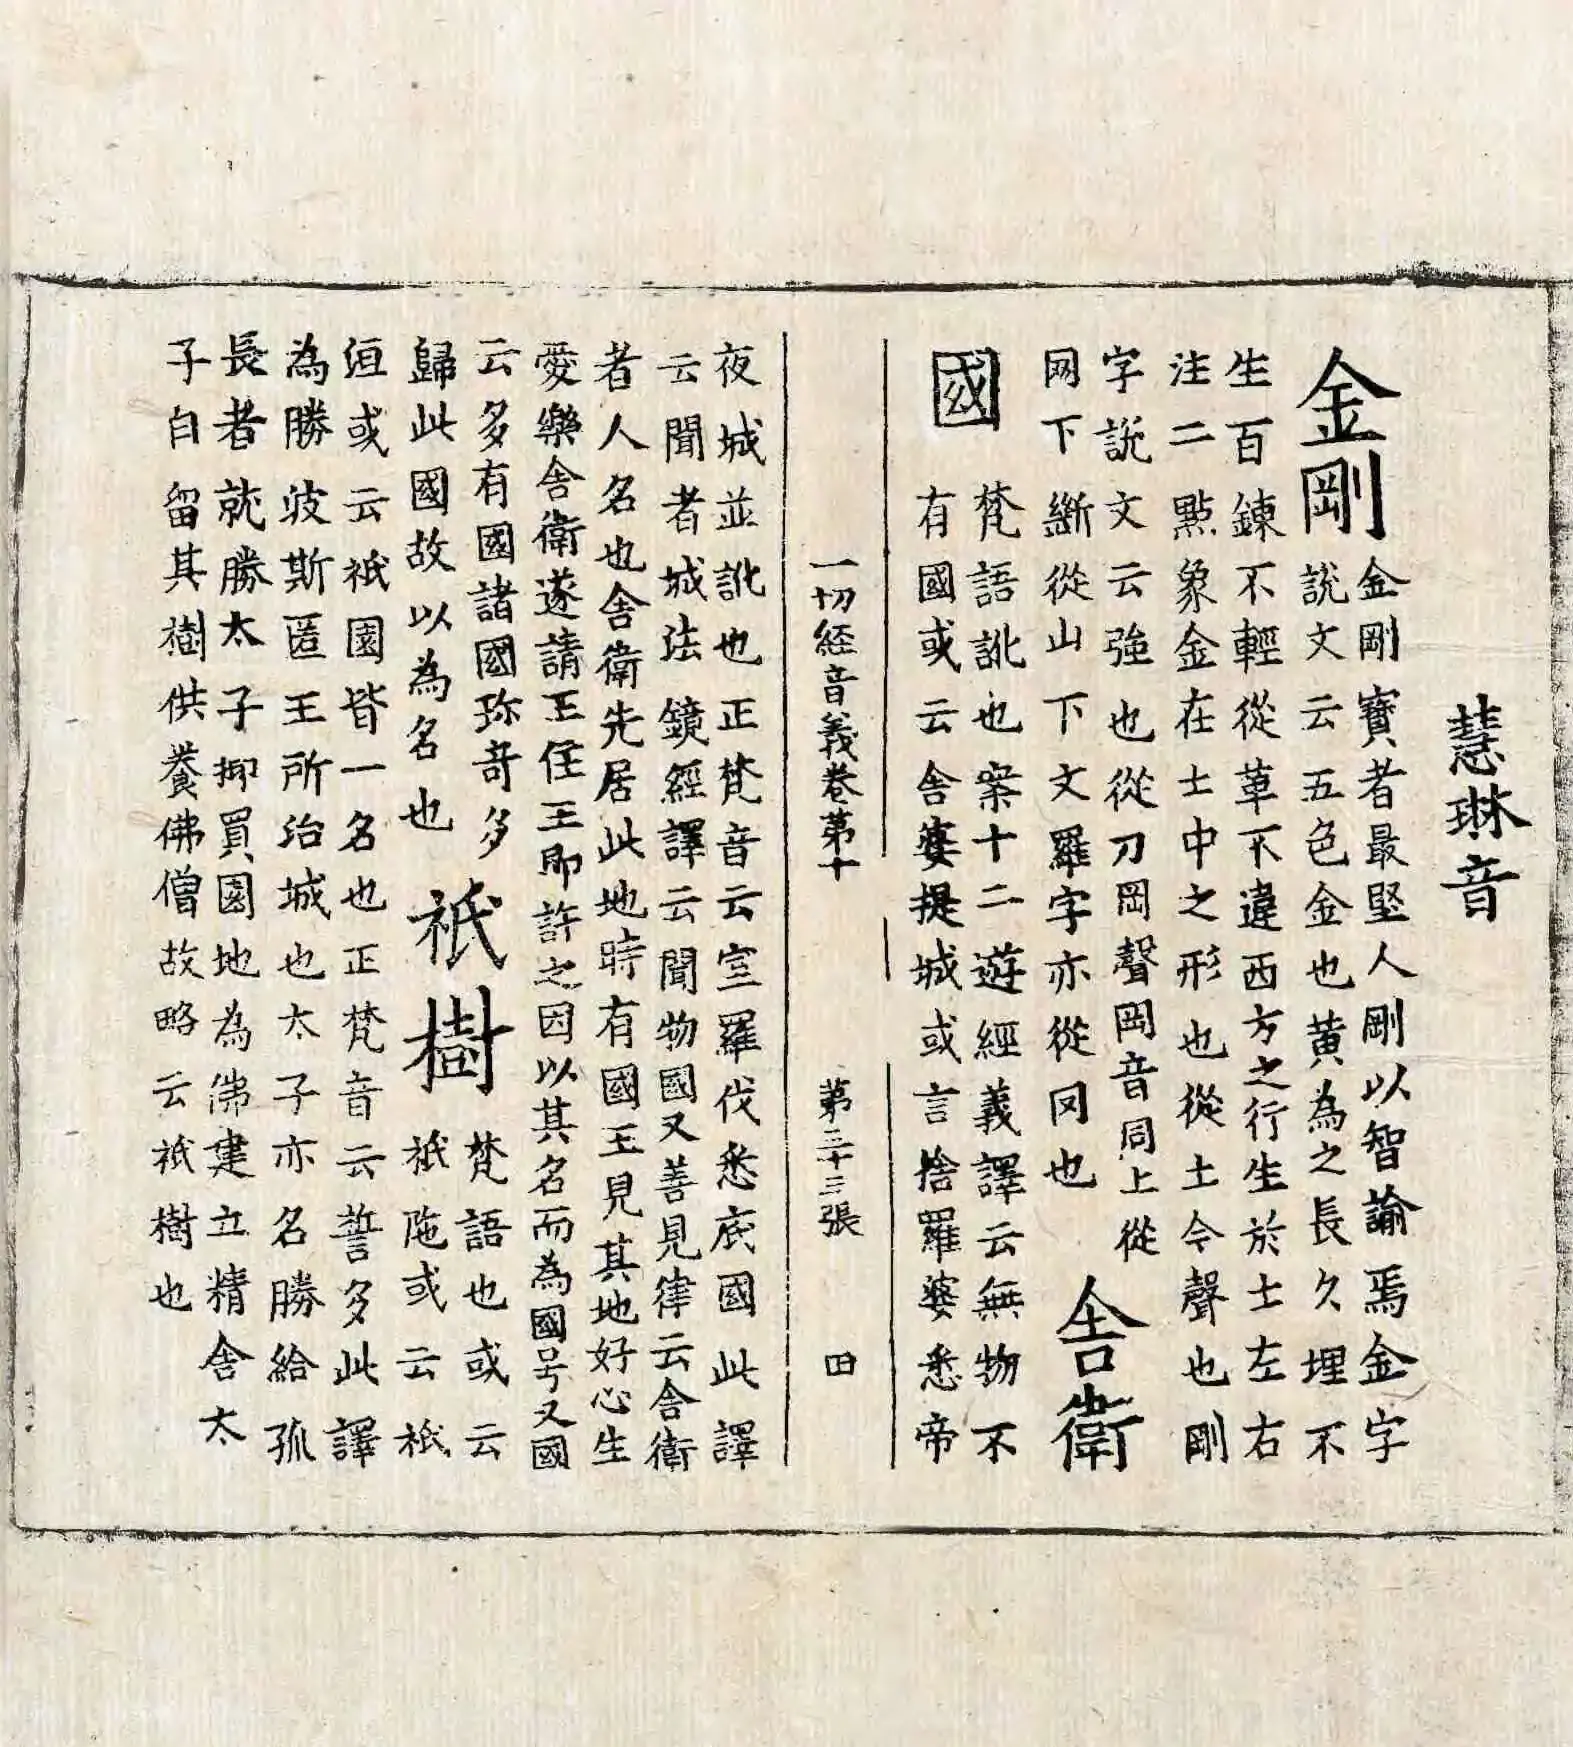 慧琳音
金剛
金剛寶者最堅人剛以智諭焉金字
說文云五色金也黃為之長久埋不
生百鍊不輕從革不違西方之行生於土左右
注二點象金在土中之形也從土今聲也剛
字說文云強也從刀岡聲岡音同上從
网下斷從山下文羅字亦從冈也
舍衛
國
梵語訛也案十二遊經義譯云無物不
有國或云舍婆提城或言捨羅婆悉帝
一切經音義卷第十 第三十三張 田
夜城並訛也正梵音云室羅伐悉底國此譯
云聞者城法鏡經譯云聞物國又善見律云舍衛
者人名也舍衛先居此地時有國王見其地好心生
愛樂舍衛遂請王住王即許之因以其名而為國号又國
云多有國諸國珎奇多
歸此國故以為名也
祇樹
梵語也或云
祇陁或云祇
洹或云祇園皆一名也正梵音云誓多此譯
為勝波斯匿王所治城也太子亦名勝給孤
長者就勝太子抑買園地為佛建立精舍太
子自留其樹供養佛僧故略云祇樹也